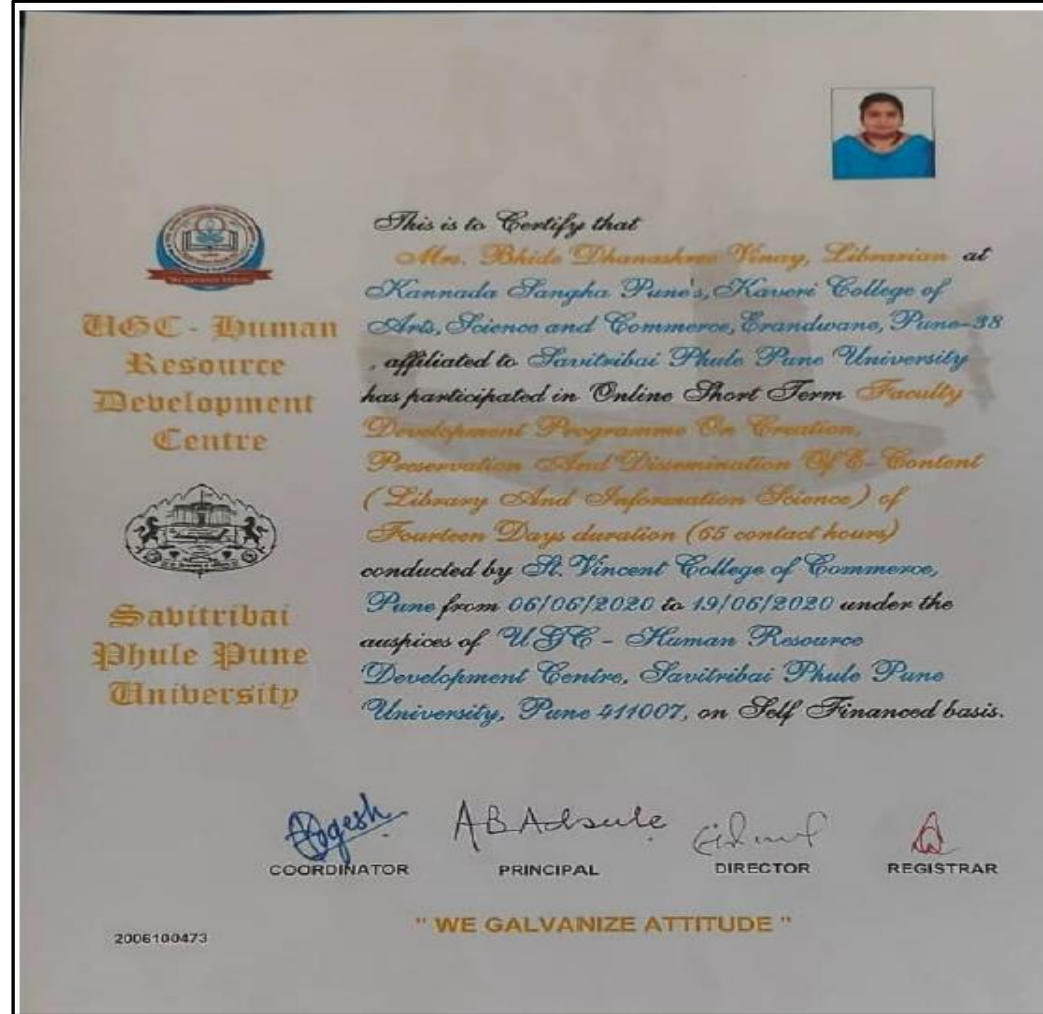 This is to Certify that
Mrs. Bhide Dhanashree Vinay, Librarian at
Kannada Sangha Pune's, Kaveri College of
Arts, Science and Commerce, Erandwane, Pune-38
, affiliated to Savitribai Phule Pune University
has participated in Online Short Term Faculty
Development Programme On Creation,
Preservation And Dissemination Of E-Content
(Library And Information Science) of
Fourteen Days duration (65 contact hours)
conducted by St. Vincent College of Commerce,
Pune from 06/06/2020 to 19/06/2020 under the
auspices of UGC - Human Resource
Development Centre, Savitribai Phule Pune
University, Pune 411007, on Self Financed basis.
UGC - Human
Resource
Development
Centre
Savitribai
Phule Pune
University
ABAdsule
COORDINATOR
PRINCIPAL
DIRECTOR
REGISTRAR
" WE GALVANIZE ATTITUDE "
2006100473